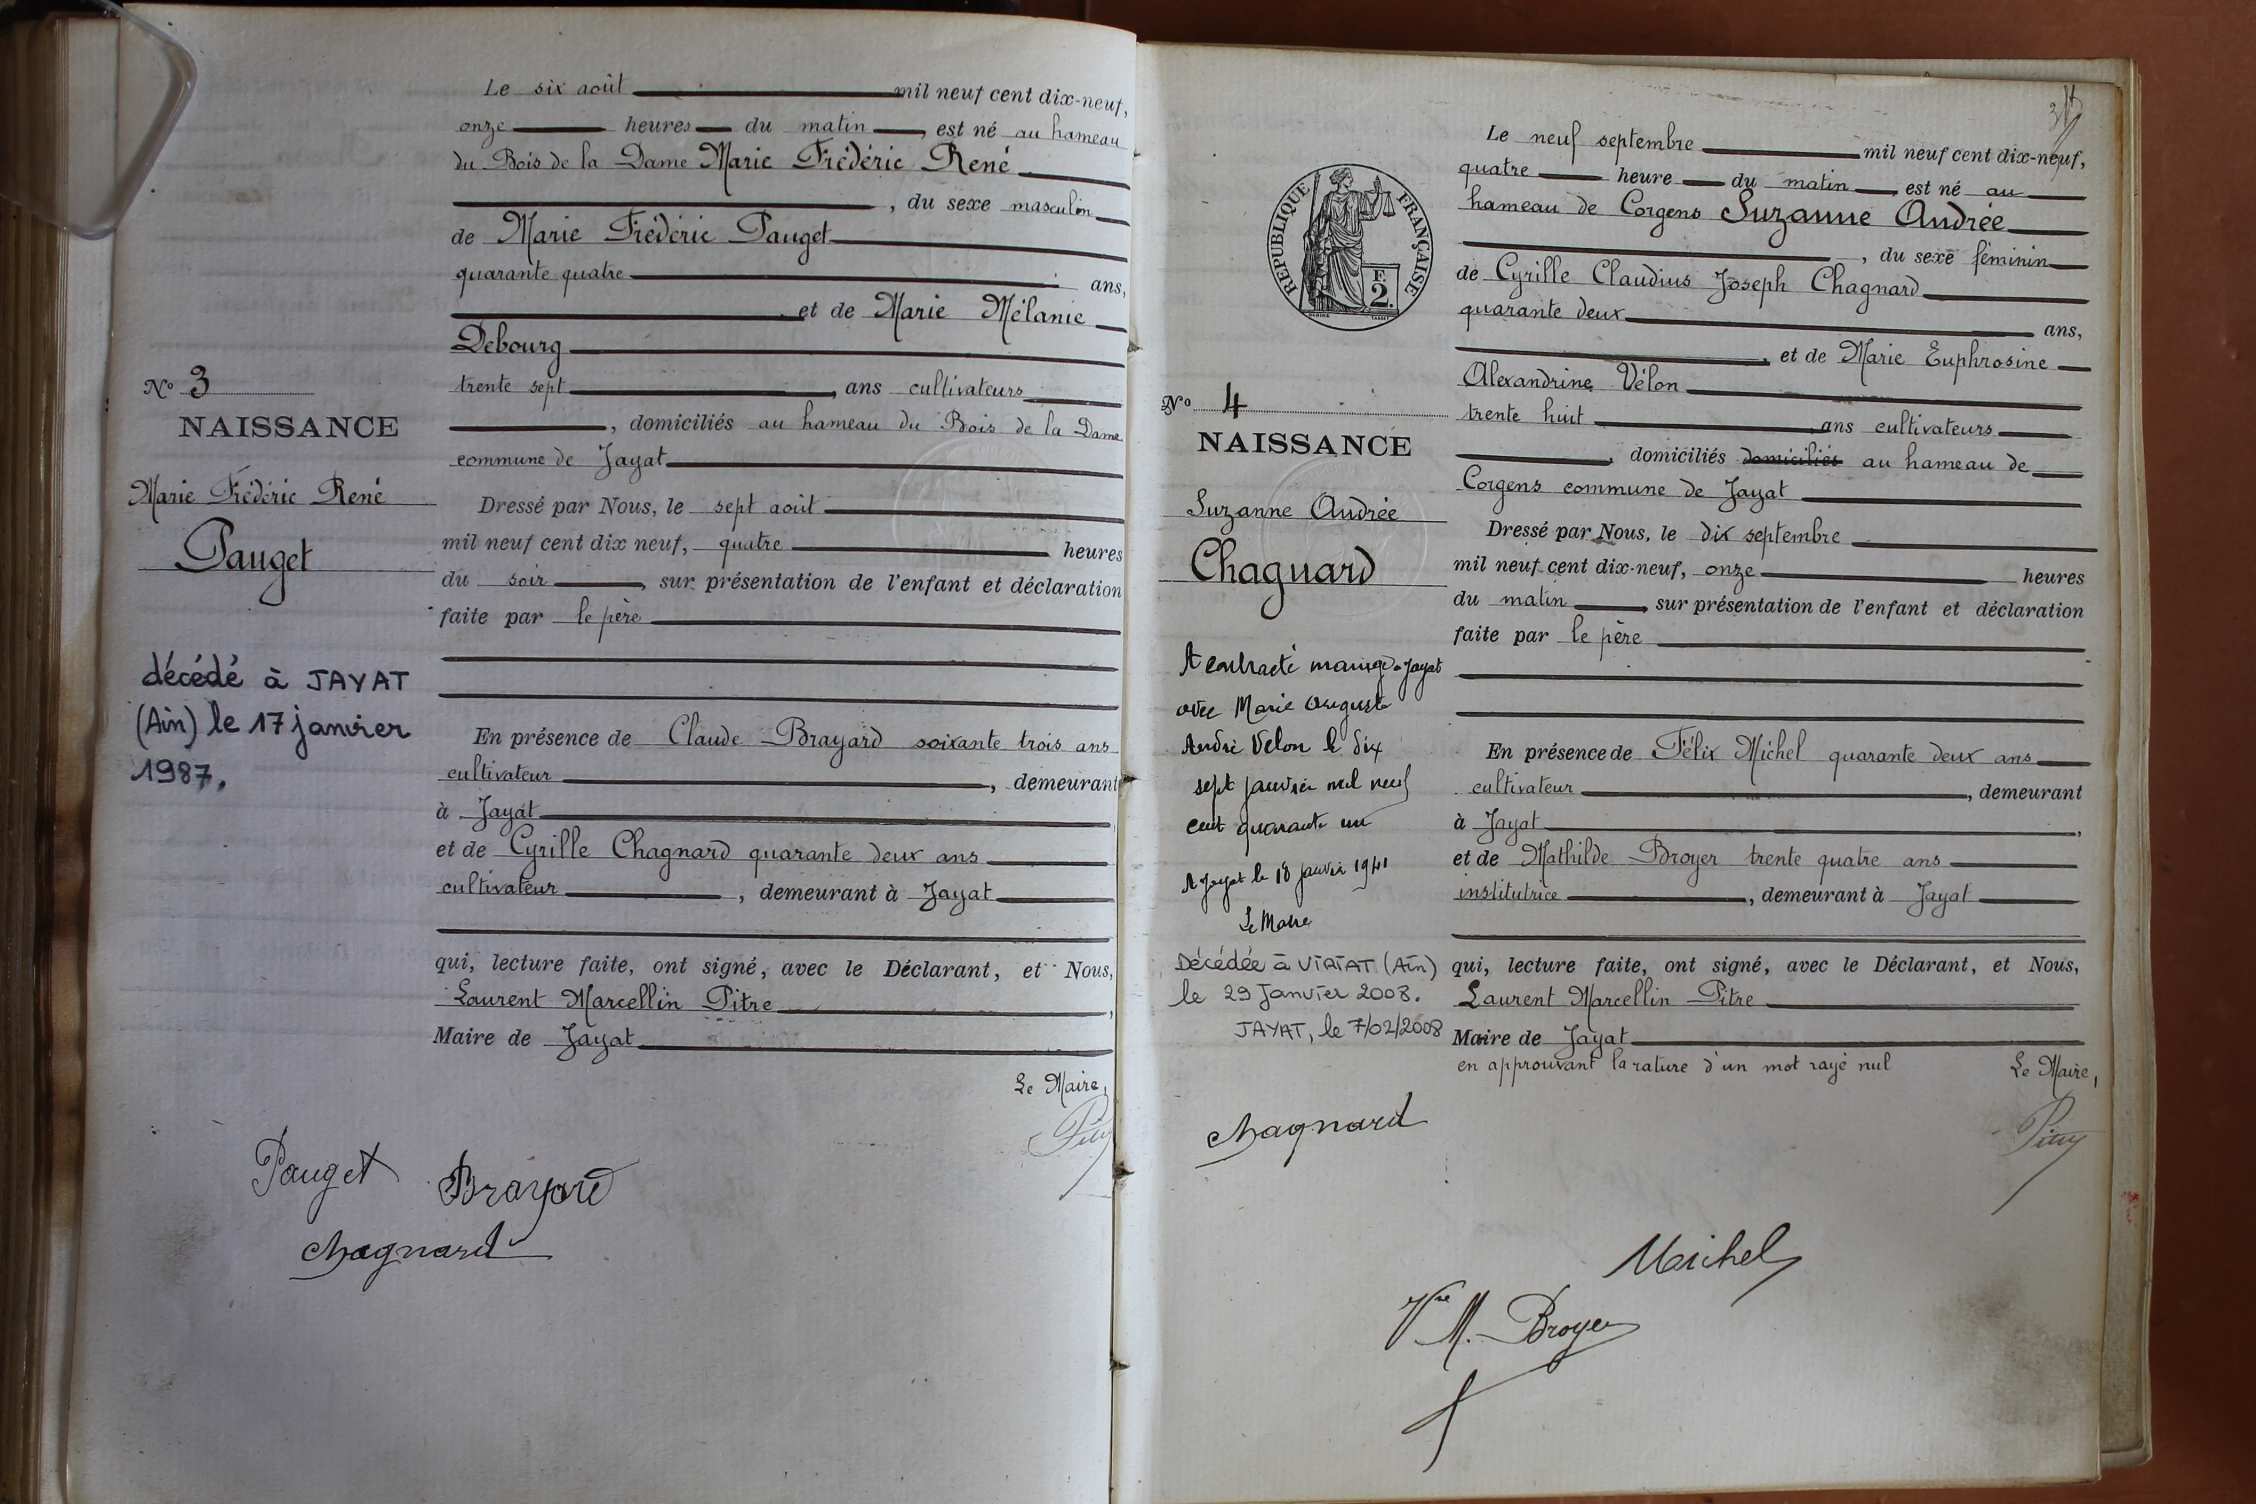 Le six août mil neuf cent dix-neuf,
onze heures du matin, est né au hameau
du Bois de la Dame Marie Frédéric René
, du sexe masculin
de Marie Frédéric Pauget
quarante quatre ans,
et de Marie Mélanie
Debourg
trente sept, ans cultivateurs
, domiciliés au hameau du Bois de la Dame
commune de Jayat
Dressé par Nous, le sept août
mil neuf cent dix neuf, quatre heures
du soir, sur présentation de l'enfant et déclaration
faite par le père
En présence de Claude Brayard soixante trois ans
cultivateur, demeurant
à Jayat,
et de Cyrille Chagnard quarante deux ans
cultivateur, demeurant à Jayat
qui, lecture faite, ont signé, avec le Déclarant, et Nous,
Laurent Marcellin Pitre,
Maire de Jayat
Le Maire,
Nº 3
NAISSANCE
Marie Frédéric René
Pauget
décédé à JAYAT
(Ain) le 17 janvier
1987.
Pauget Brayard
Chagnard
Le neuf septembre mil neuf cent dix-neuf,
quatre heure du matin, est né au
hameau de Corgens Suzanne Andrée
, du sexe féminin
de Cyrille Claudius Joseph Chagnard
quarante deux ans,
, et de Marie Euphrosine
Alexandrine Vélon
trente huit, ans cultivateurs
, domiciliés domiciliés au hameau de
Corgens commune de Jayat
Dressé par Nous, le dix septembre
mil neuf cent dix-neuf, onze heures
du matin, sur présentation de l'enfant et déclaration
faite par le père
En présence de Félix Michel quarante deux ans
cultivateur, demeurant
à Jayat,
et de Mathilde Broyer trente quatre ans
institutrice, demeurant à Jayat
qui, lecture faite, ont signé, avec le Déclarant, et Nous,
Laurent Marcellin Pitre
Maire de Jayat
en approuvant la rature d'un mot rayé nul
Le Maire,
RÉPUBLIQUE FRANÇAISE
F.
2.
Nº 4
NAISSANCE
Suzanne Andrée
Chagnard
A contracté mariage à Jayat
avec Marie Auguste
André Velon le dix
sept janvier mil neuf
cent quarante un
A Jayat le 18 janvier 1941
Le Maire
Décédée à VIRIAT (Ain)
le 29 Janvier 2008.
JAYAT, le 7/02/2008
Chagnard
Michel
Vve M. Broyer